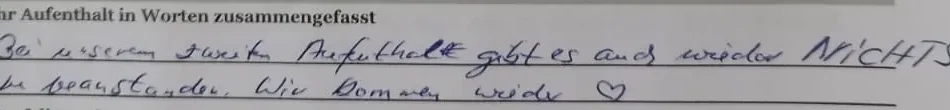 hr Aufenthalt in Worten zusammengefasst
Bei unserem zweiten Aufenthalt gibt es auch wieder NICHTS
zu beanstanden. Wir kommen wieder ♡